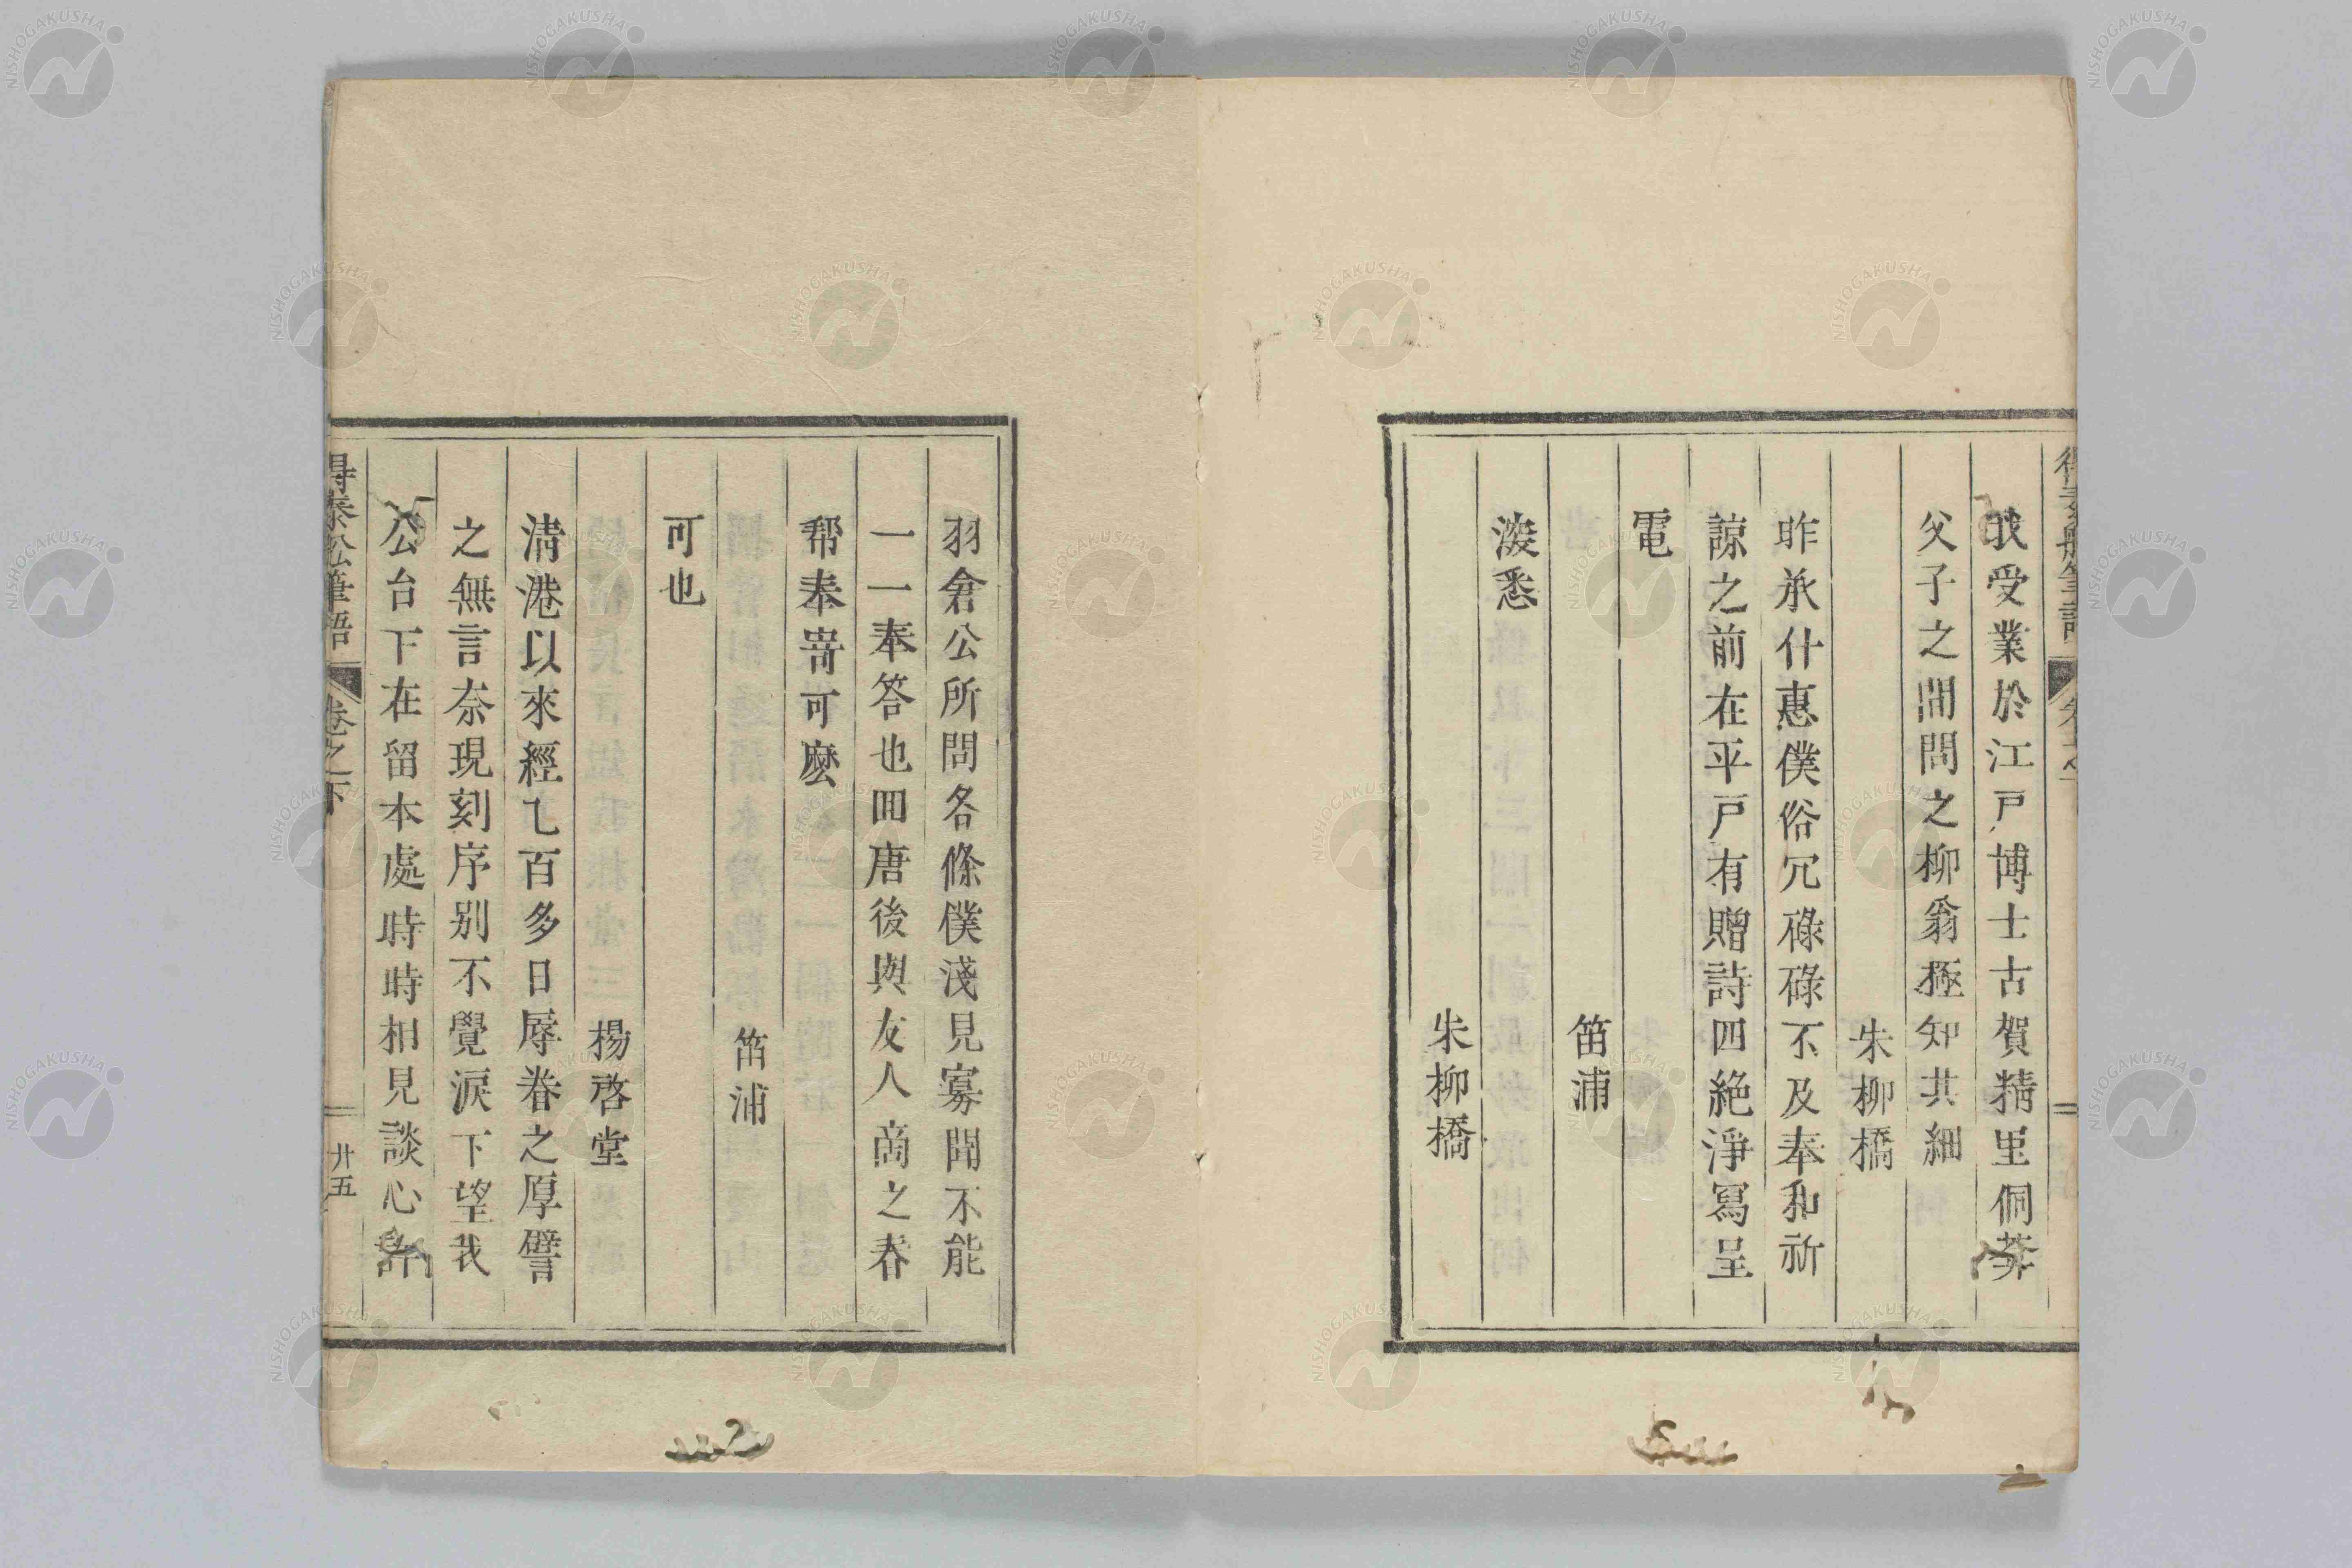 我受業於江戸博士古賀精里侗菴
父子之間問之柳翁極知其細
朱柳橋
昨承什惠僕俗冗碌碌不及奉和祈
諒之前在平戸有贈詩四絶淨寫呈
電
笛浦
淡悉
朱柳橋
羽倉公所問各條僕淺見寡聞不能
一一奉答也囬唐後與友人商之春
帮奉嵜可麽
笛浦
可也
楊啓堂
清港以來經乚百多日辱眷之厚譬
之無言奈現刻序别不覺淚下望我
公台下在留本處時時相見談心
得泰舩筆語 卷之下 廿五